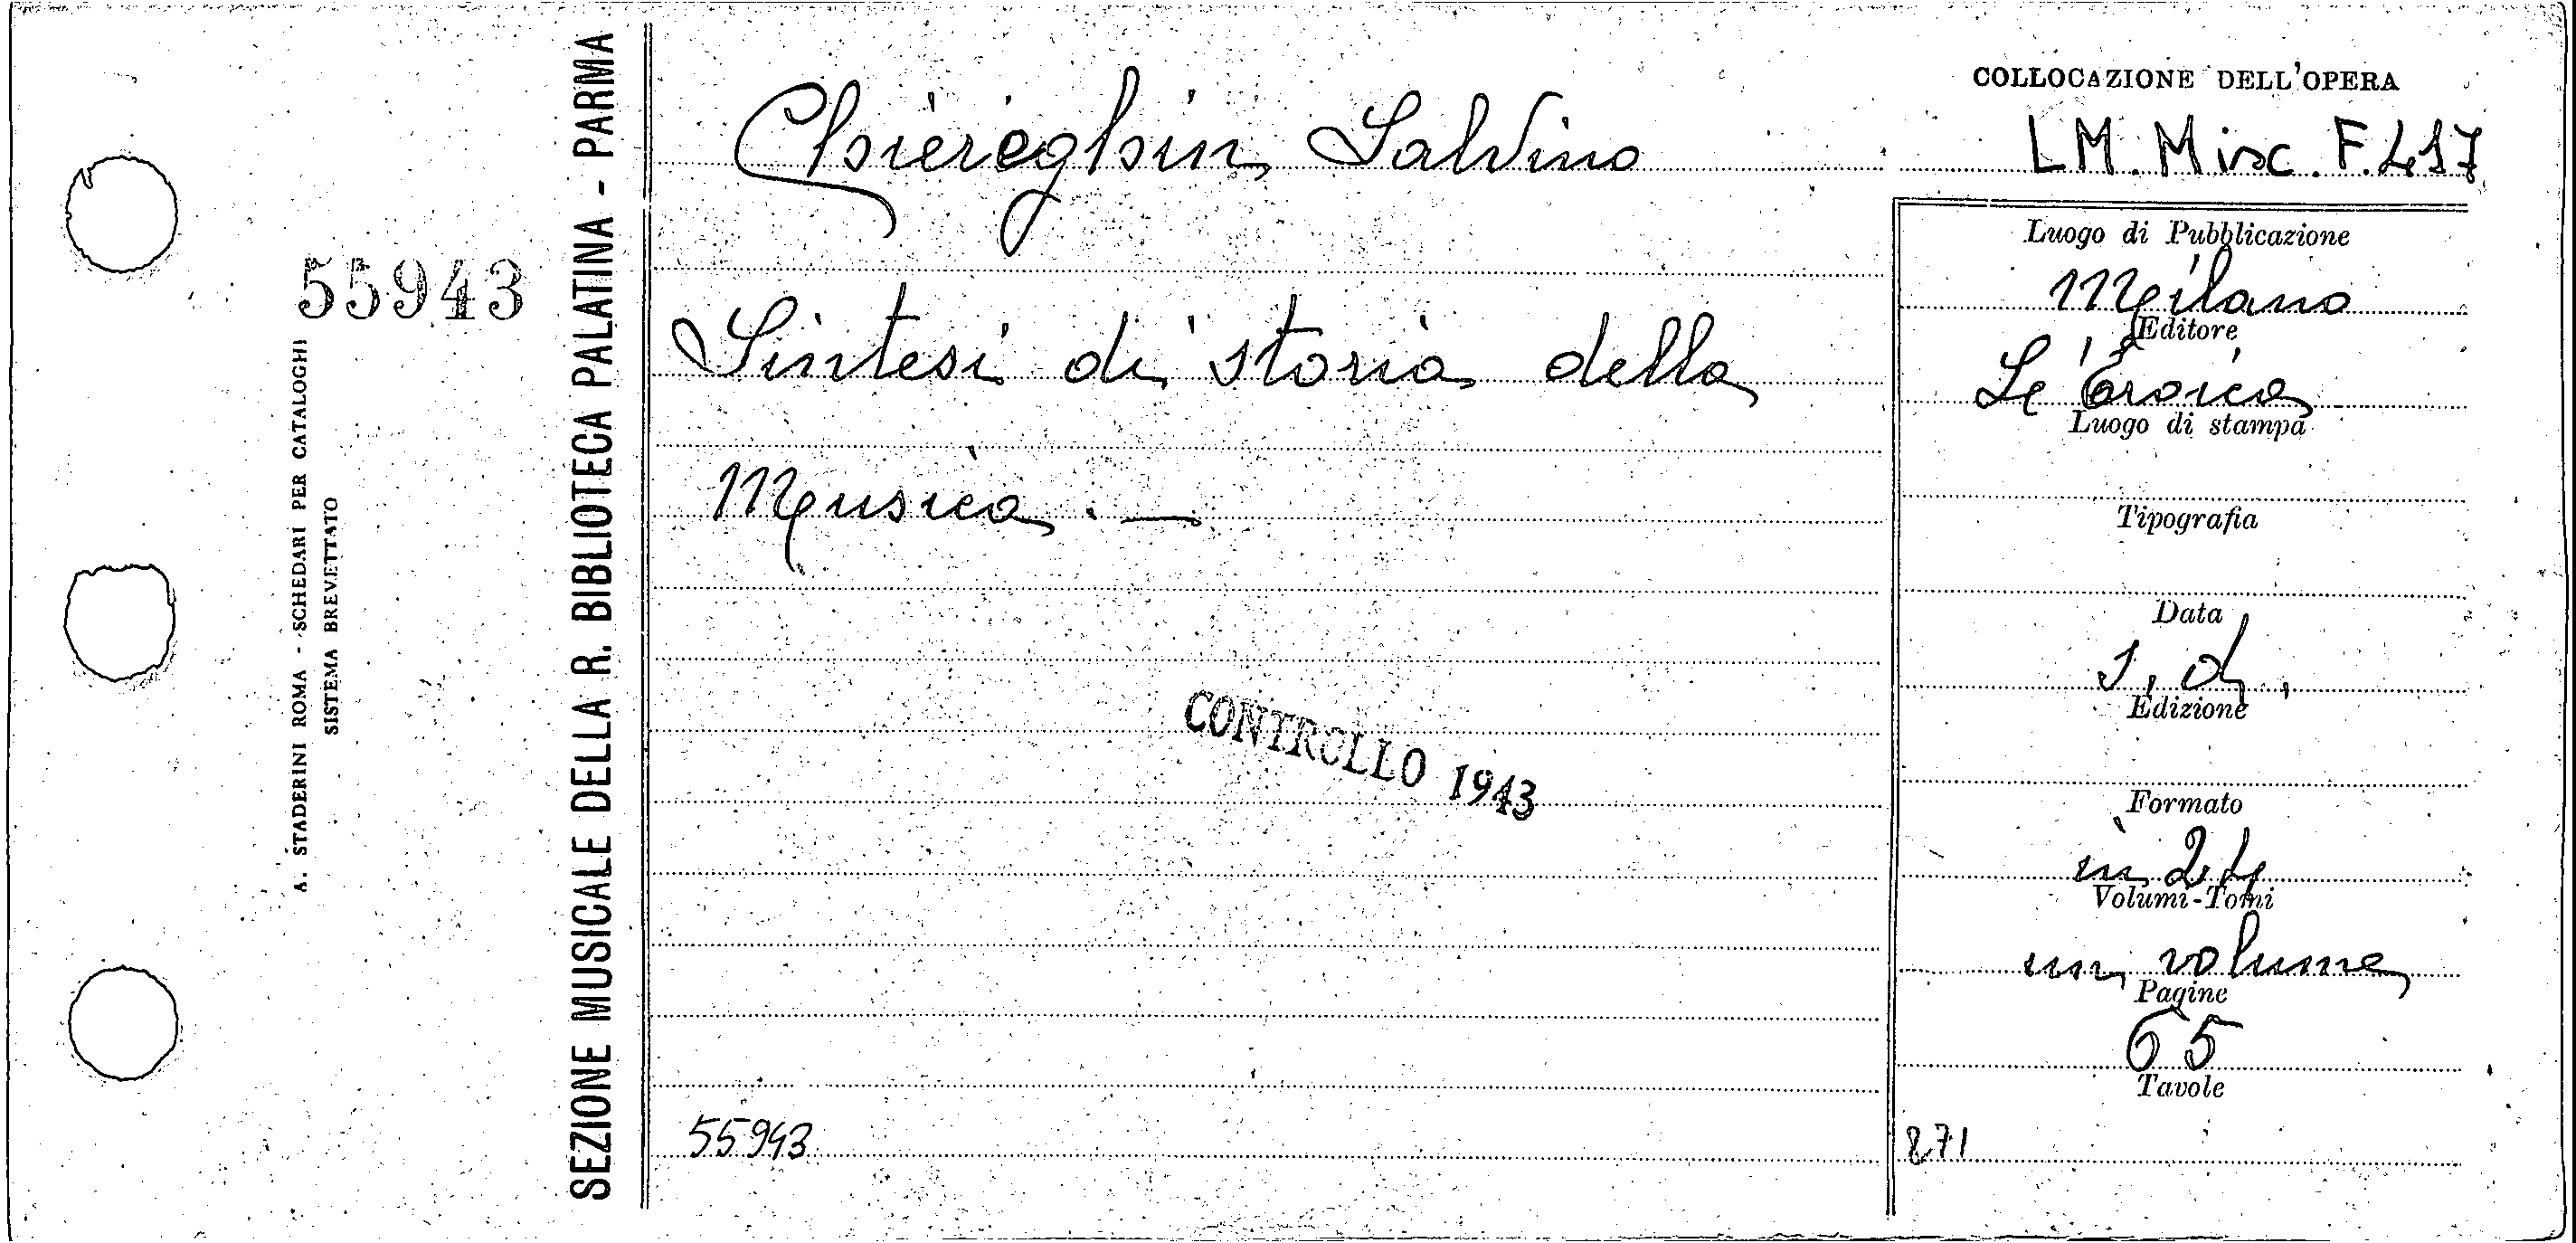 55943
A. STADERINI ROMA - SCHEDARI PER CATALOGHI
SISTEMA BREVETTATO
SEZIONE MUSICALE DELLA R. BIBLIOTECA PALATINA - PARMA
Chiereghin Salvino
Sintesi di storia della
Musica. —
CONTROLLO 1943
55943
COLLOCAZIONE DELL'OPERA
LM. Misc. F. 417
Luogo di Pubblicazione
Milano
Editore
L'Eroica
Luogo di stampa
Tipografia
Data
s. d.
Edizione
Formato
in 24
Volumi-Tomi
un volume
Pagine
65
Tavole
271